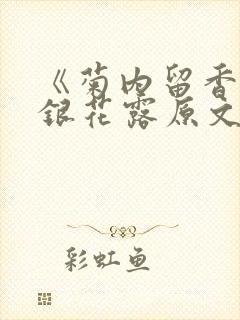 《菊内留香
银花露原文
彩虹鱼